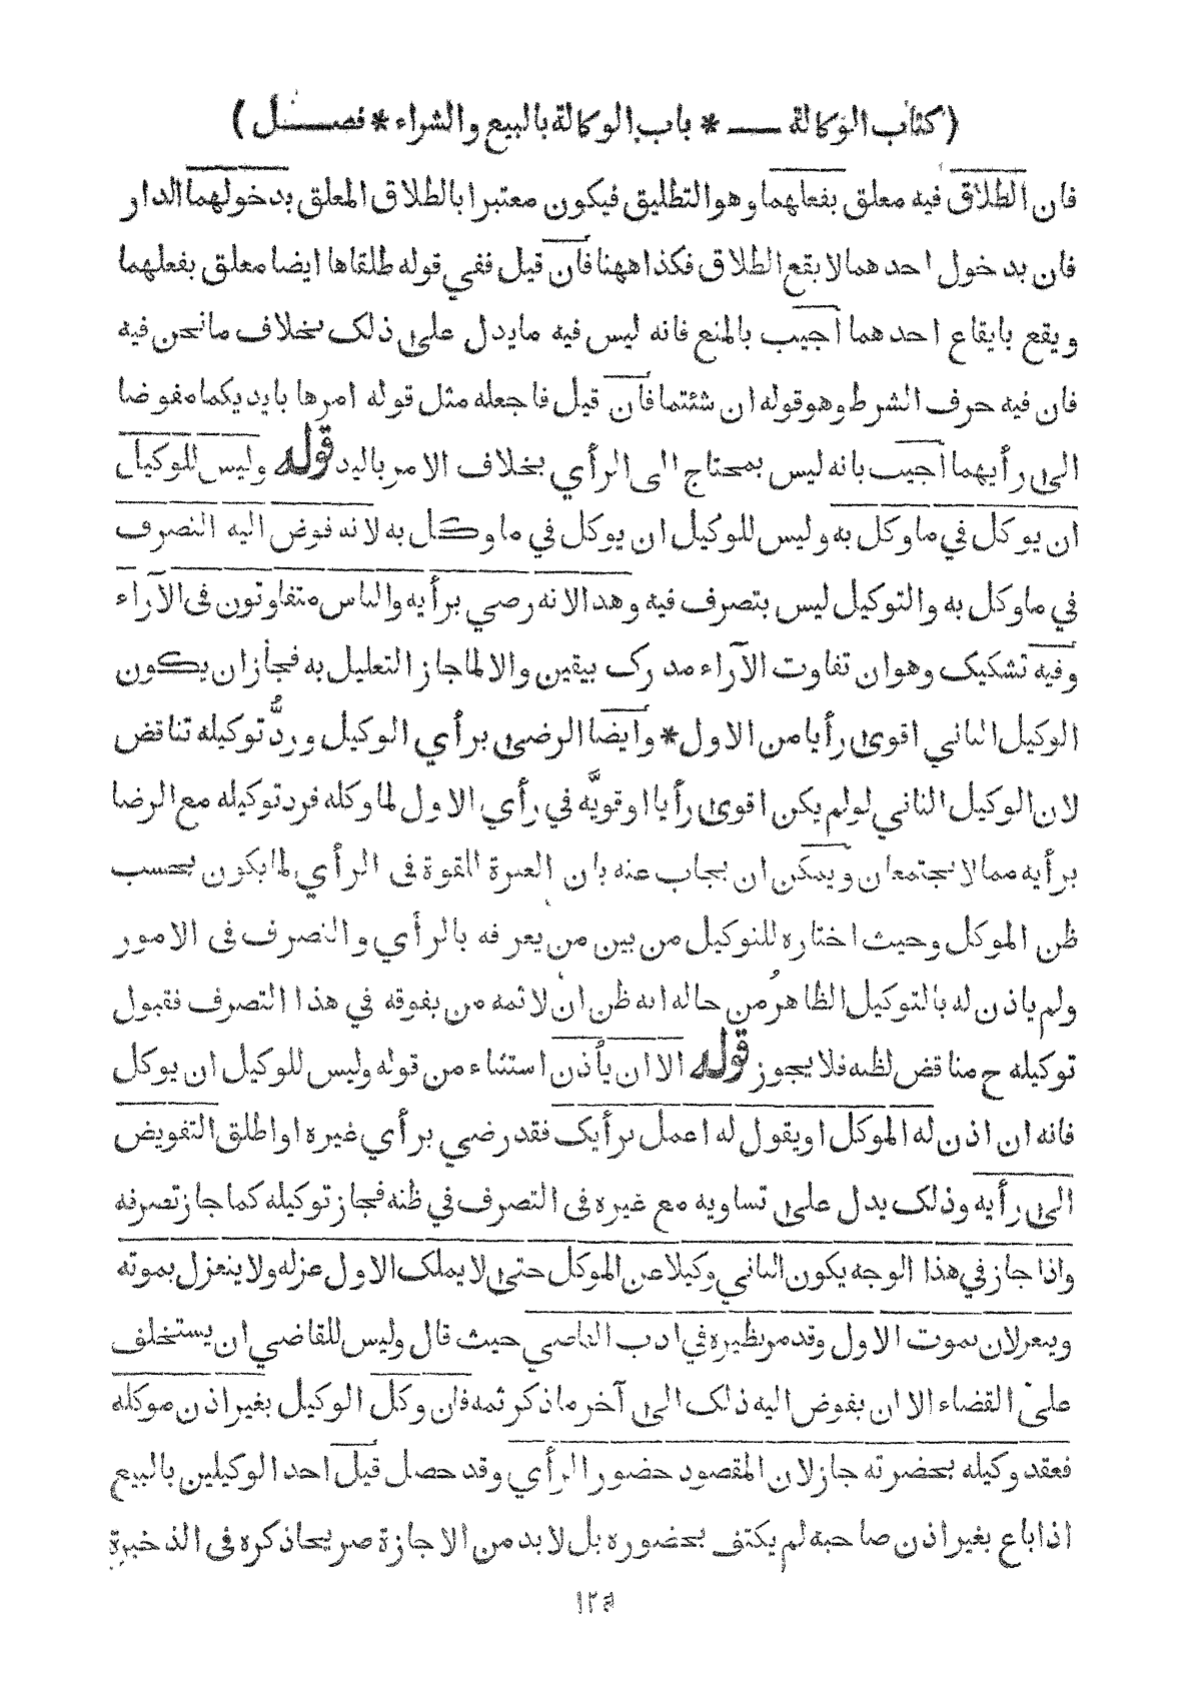 ( كتاب الوكالة ـــ * باب الوكالة بالبيع والشراء * فصـــل )
فان الطلاق فيه معلق بفعلهما وهو التطليق فيكون معتبرا بالطلاق المعلق بدخولهما الدار
فان بدخول احدهما لا يقع الطلاق فكذا ههنا فان قيل ففي قوله طلقاها ايضا معلق بفعلهما
ويقع بايقاع احدهما اجيب بالمنع فانه ليس فيه مايدل على ذلك بخلاف مانحن فيه
فان فيه حرف الشرط وهو قوله ان شئتما فان قيل فاجعله مثل قوله امرها بايديكما مفوضا
الى رأيهما اجيب بانه ليس بمحتاج الى الرأي بخلاف الامر باليد قوله وليس للوكيل
ان يوكل في ماوكل به وليس للوكيل ان يوكل في ماوكل به لانه فوض اليه التصرف
في ماوكل به والتوكيل ليس بتصرف فيه وهذا لانه رضي برأيه والناس متفاوتون فى الآراء
وفيه تشكيك وهو ان تفاوت الآراء مدرك بيقين والا لماجاز التعليل به فجاز ان يكون
الوكيل الثاني اقوى رأيا من الاول * وايضا الرضى برأي الوكيل وردُّ توكيله تناقض
لان الوكيل الثاني لولم يكن اقوى رأيا اوقويَّه في رأي الاول لماوكله فرد توكيله مع الرضا
برأيه ممالا يجتمعان ويمكن ان يجاب عنه بان العبرة للقوة فى الرأي لما يكون بحسب
ظن الموكل وحيث اختاره للتوكيل من بين من يعرفه بالرأي والتصرف فى الامور
ولم ياذن له بالتوكيل الظاهرُ من حاله انه ظن ان لاثمه من يفوقه في هذا التصرف فقبول
توكيله ح مناقض لظنه فلا يجوز قوله الا ان يأذن استثناء من قوله وليس للوكيل ان يوكل
فانه ان اذن له الموكل اويقول له اعمل برأيك فقد رضي برأي غيره او اطلق التفويض
الى رأيه وذلك يدل على تساويه مع غيره فى التصرف في ظنه فجاز توكيله كما جاز تصرفه
واذا جاز في هذا الوجه يكون الثاني وكيلا عن الموكل حتى لا يملك الاول عزله ولا ينعزل بموته
وينعزلان بموت الاول وقد مر نظيره في ادب القاضي حيث قال وليس للقاضي ان يستخلف
على القضاء الا ان يفوض اليه ذلك الى آخر ماذكر ثمه فان وكل الوكيل بغير اذن موكله
فعقد وكيله بحضرته جاز لان المقصود حضور الرأي وقد حصل قيل احد الوكيلين بالبيع
اذا باع بغير اذن صاحبه لم يكتف بحضوره بل لا بد من الاجازة صريحا ذكره فى الذخيرة